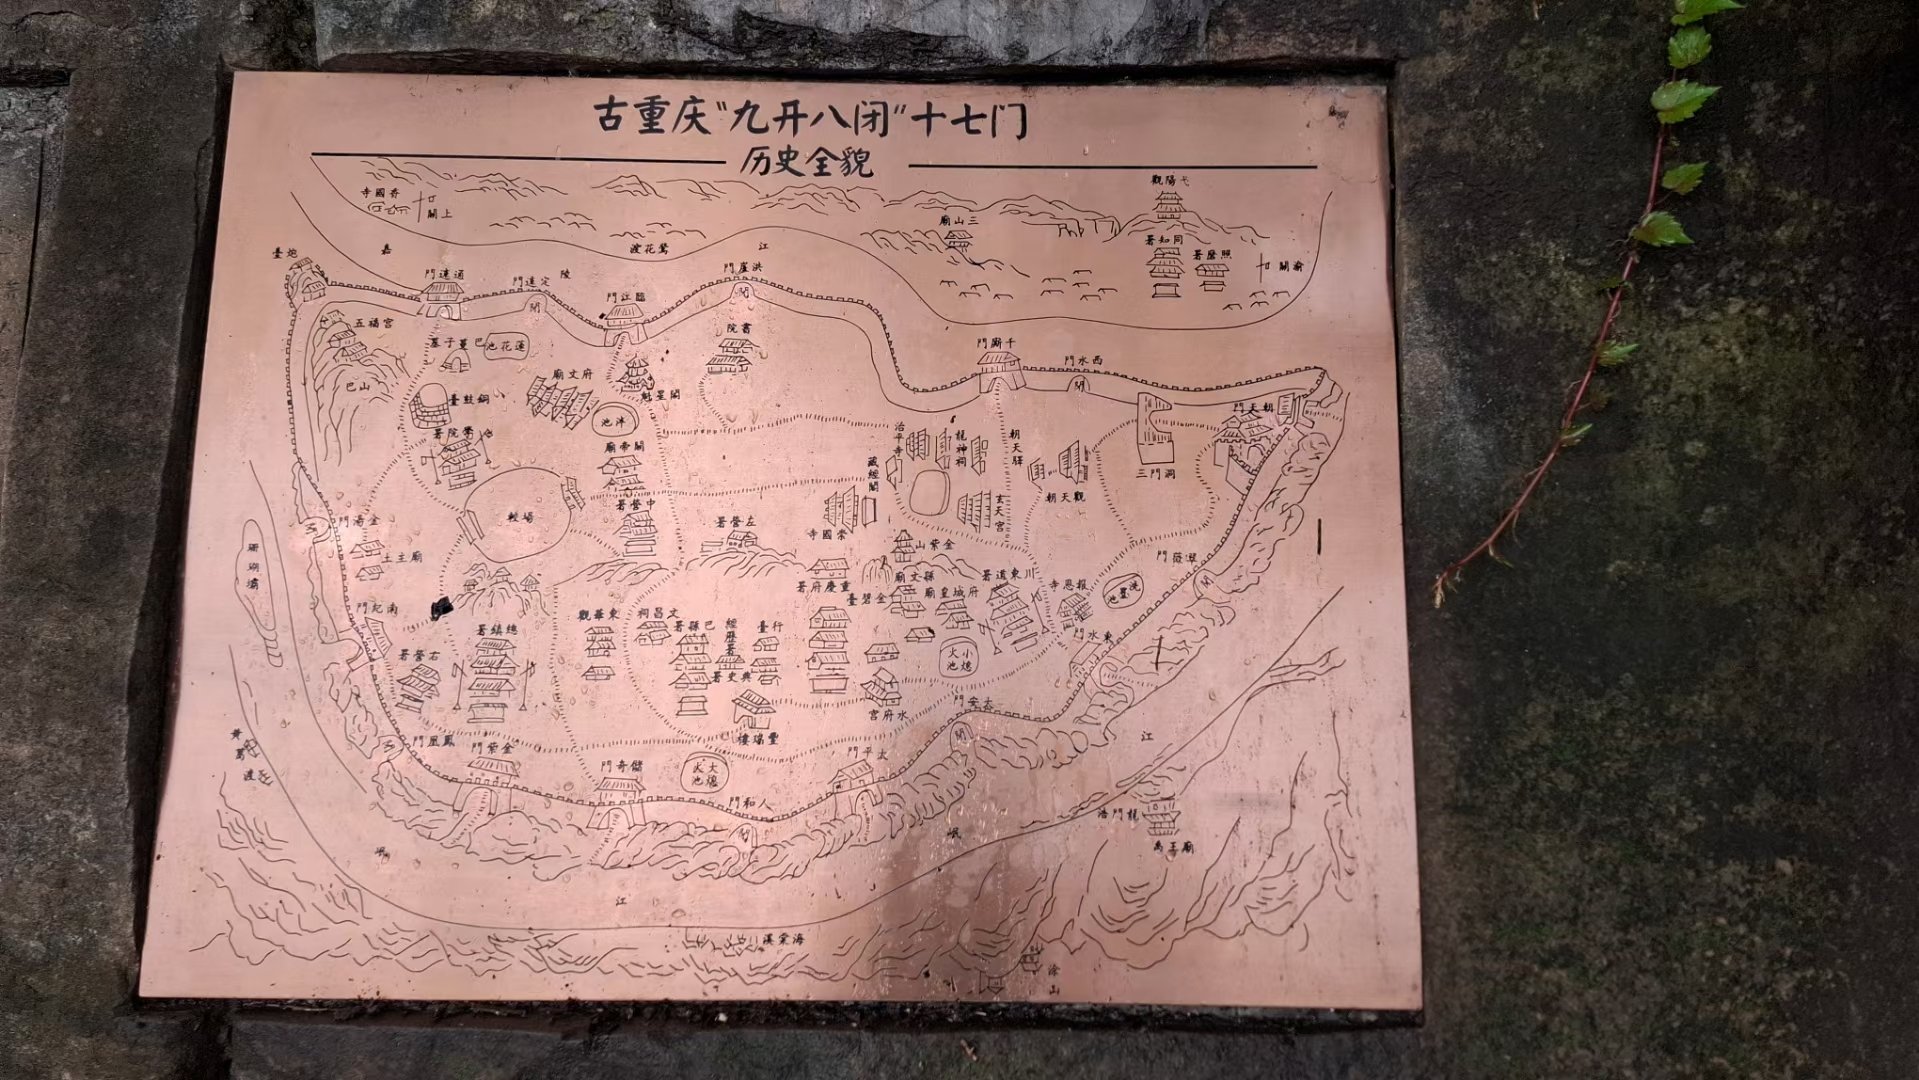 古重庆“九开八闭”十七门
历史全貌
觀陽弋
寺國香
關上
廟山三
署知同
署磨照
關渝
嘉
渡花鶯
江
陵
臺炮
門遠通
門遠定
閉
門江臨
門崖洪
閉
五福宮
巴山
墓子蔓巴
池花蓮
院書
門廝千
門水西
閉
臺鼓銅
廟文府
池泮
魁星閣
門天朝
署院學
廟帝關
治平寺
龍神祠
朝天驛
藏經閣
三門洞
朝天觀
玄天宮
較場
署營中
署營左
寺國崇
門湯金
土主廟
珊瑚壩
山紫金
門薇翠
閉
署府慶重
臺碧金
廟文縣
廟皇城府
署道東川
寺恩報
池墨洗
門紀南
觀華東
祠昌文
署縣巴
經歷署
臺行
署史典
署鎮總
署營右
火小池熄
門水東
宮府水
門安太
閉
樓瑞豐
門凰鳳
門紫金
門奇儲
火大池熄
門平太
門和人
閉
黃葛渡
江
浩門龍
禹王廟
岷
岷
江
溪棠海
涂山